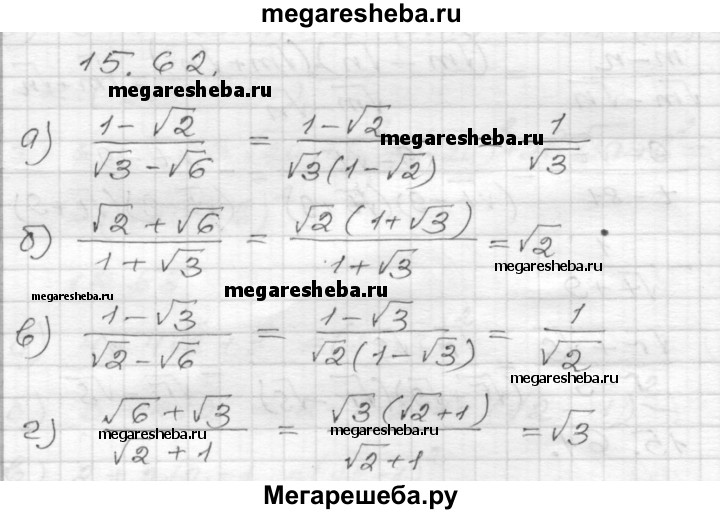 megaresheba.ru
15.62.
megaresheba.ru
а) (1-√2)/(√3-√6) = (1-√2)/(√3(1-√2)) = 1/√3
megaresheba.ru
б) (√2+√6)/(1+√3) = (√2(1+√3))/(1+√3) = √2
megaresheba.ru
megaresheba.ru megaresheba.ru
в) (1-√3)/(√2-√6) = (1-√3)/(√2(1-√3)) = 1/√2
megaresheba.ru
г) (√6+√3)/(√2+1) = (√3(√2+1))/(√2+1) = √3
megaresheba.ru megaresheba.ru megaresheba.ru
Мегарешеба.ру